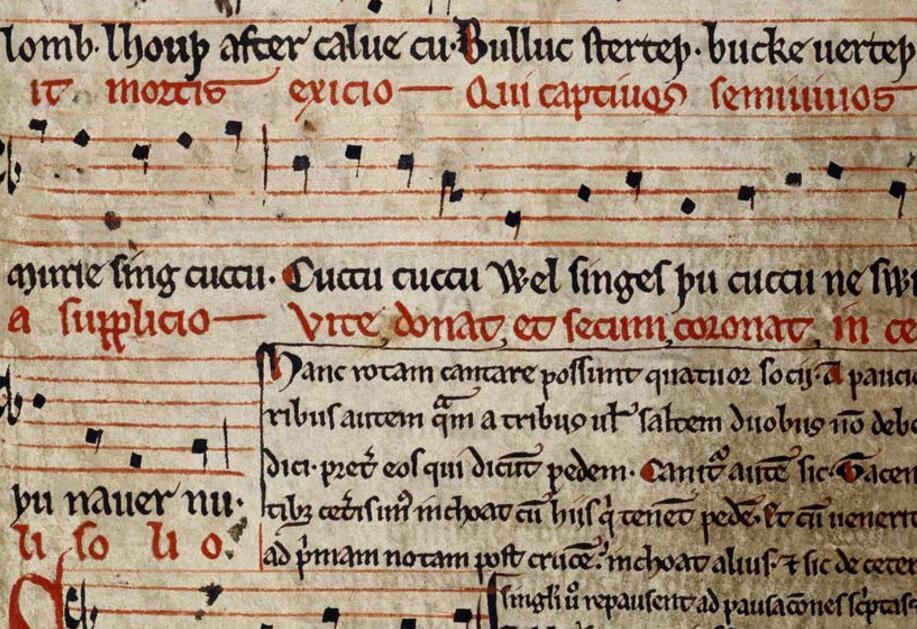 lomb· lhouþ after calue cu· Bulluc sterteþ· bucke uerteþ
it mortis exicio — Qui captiuos semiuiuos
murie sing cuccu· Cuccu cuccu Wel singes þu cuccu ne swi
a supplicio — Vite donat, et secum coronat, in ce
Hanc rotam cantare possunt quatuor socij· A paucio
þu nauer nu·
ribus autem qͣm a tribus ul' saltem duobus nō debe
li so li o.
dici· pret̄ eos qui dicūt pedem· Canit᷒ autē sic· Tacen
tibȝ cet̄is un᷒ inchoat cū hijs q̇ tenēt pedē· Et cū uenerit
ad p̍mam notam post crucē· inchoat alius· ⁊ sic de ceter
singli ů repausent ad pausacōnes sc̍ptas